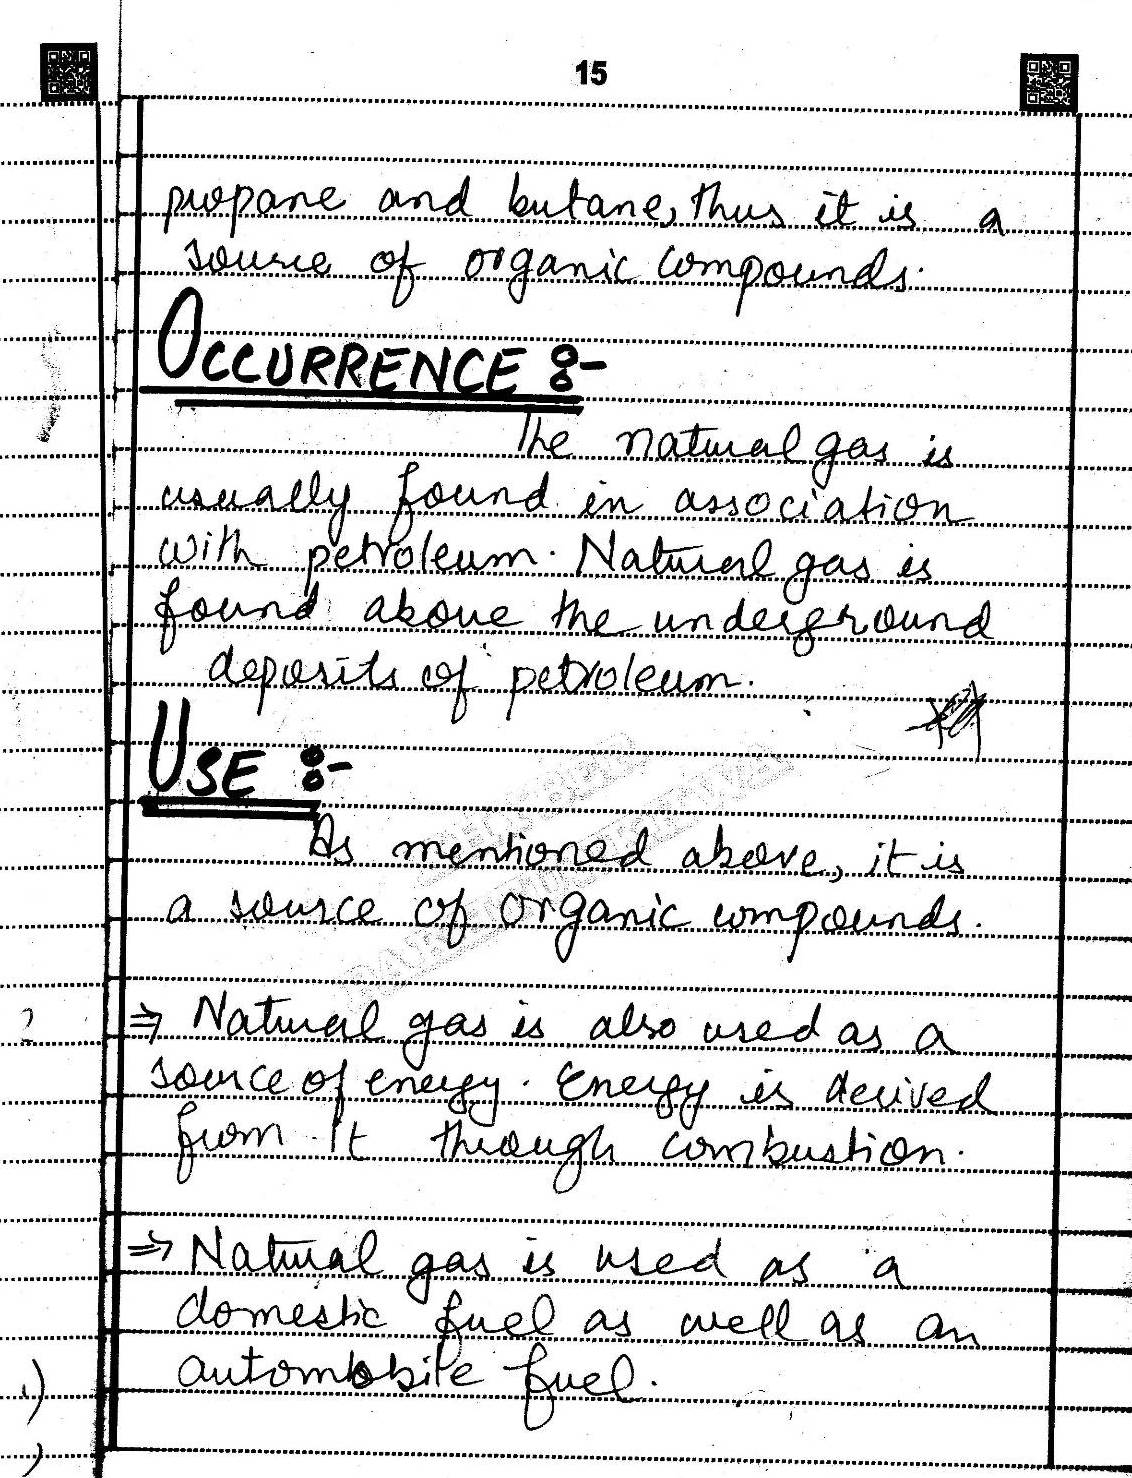 15
propane and butane, thus it is a
source of organic compounds.
OCCURRENCE :-
The natural gas is
usually found in association
with petroleum. Natural gas is
found above the underground
deposits of petroleum.
USE :-
As mentioned above, it is
a source of organic compounds.
⇒ Natural gas is also used as a
source of energy. Energy is derived
from It through combustion.
⇒ Natural gas is used as a
domestic fuel as well as an
automobile fuel.